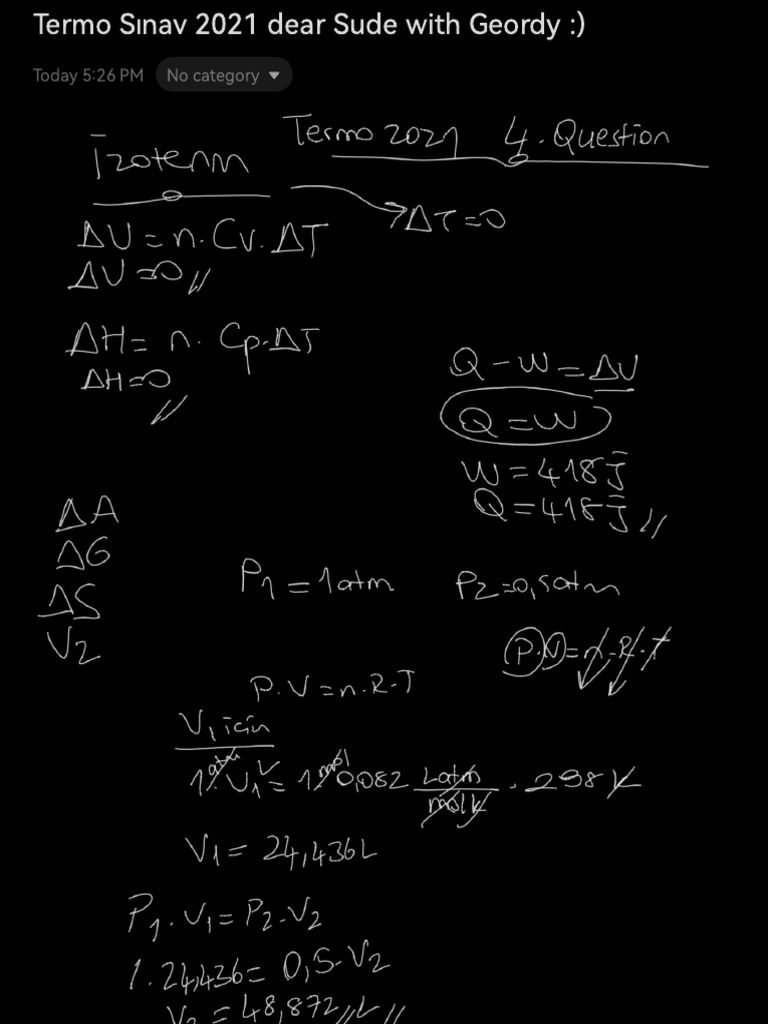 Termo Sınav 2021 dear Sude with Geordy :)
Today 5:26 PM No category
Termo 2021 4. Question
İzoterm
ΔT=0
ΔU = n. Cv. ΔT
ΔU =0 //
ΔH= n. Cp.ΔT
ΔH=0
//
Q - W = ΔU
Q = W
W = 418 J
Q = 418 J //
ΔA
ΔG
ΔS
V2
P1 = 1 atm P2=0,5 atm
P.V = n.R.T
P.V = n.R.T
V1 için
1 atm. V1 = 1 mol 0,082 Latm/molK . 298 K
V1 = 24,436 L
P1.V1 = P2.V2
1.24,436 = 0,5.V2
V2 = 48,872 // L //